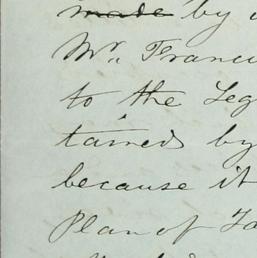 made by
Mr. Franc
to the Leg
tained by
because it
Plan of